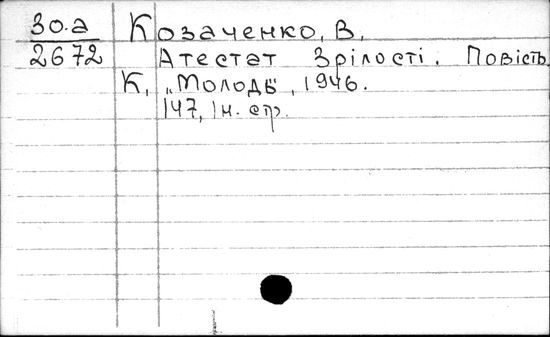 30.а
2672
Козаченко, В.
Атестат Зрілості. Повість.
К., „Молодь", 1946.
147, 1 н. стр.